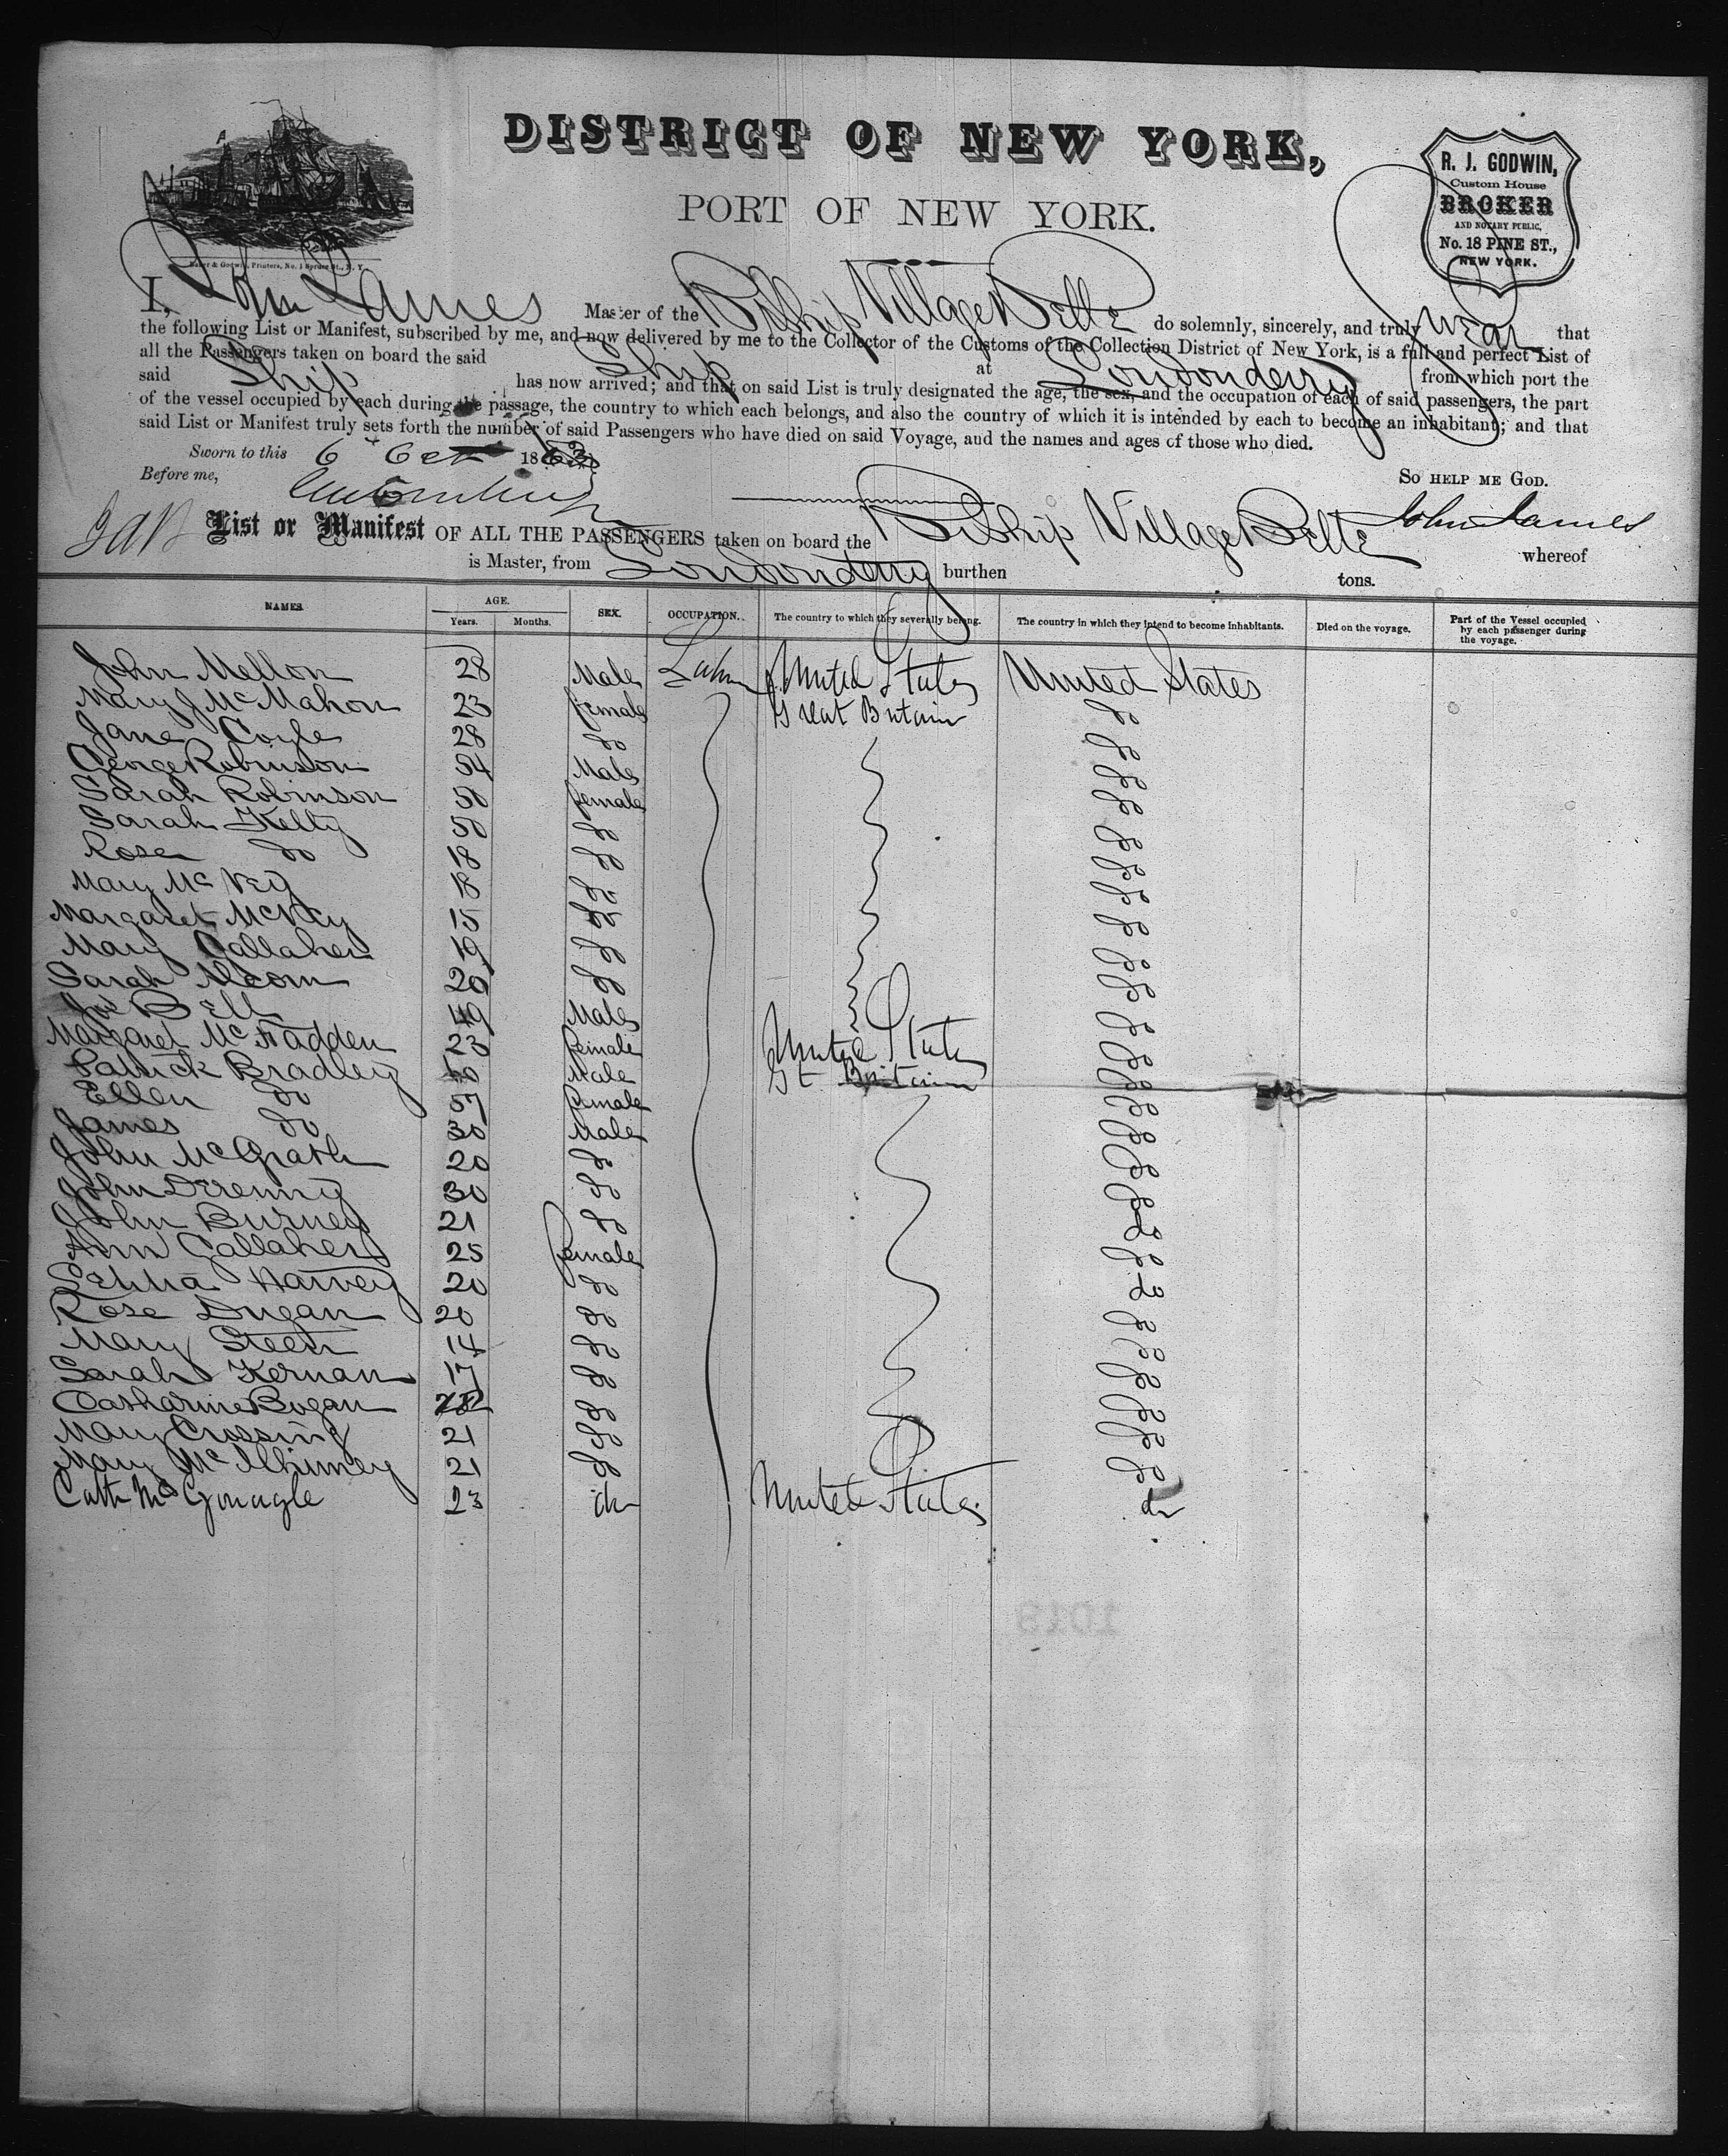 DISTRICT OF NEW YORK,
PORT OF NEW YORK.
R. J. GODWIN,
Custom House
BROKER
AND NOTARY PUBLIC,
No. 18 PINE ST.,
NEW YORK.
Baker & Godwin, Printers, No. 1 Spruce St., N. Y.
I, John James Master of the Br Ship Village Belle do solemnly, sincerely, and truly swear that
the following List or Manifest, subscribed by me, and now delivered by me to the Collector of the Customs of the Collection District of New York, is a full and perfect List of
all the Passengers taken on board the said Ship at Londonderry from which port the
said Ship has now arrived; and that on said List is truly designated the age, the sex, and the occupation of each of said passengers, the part
of the vessel occupied by each during the passage, the country to which each belongs, and also the country of which it is intended by each to become an inhabitant; and that
said List or Manifest truly sets forth the number of said Passengers who have died on said Voyage, and the names and ages of those who died.
Sworn to this 6 Oct 1863
So HELP ME GOD.
Before me,
John James
List or Manifest OF ALL THE PASSENGERS taken on board the Br Ship Village Belle whereof
is Master, from Londonderry burthen tons.
NAMES. AGE. SEX. OCCUPATION. The country to which they severally belong. The country in which they intend to become inhabitants. Died on the voyage. Part of the Vessel occupied by each passenger during the voyage.
Years. Months.
John Mellon 28 Male United States United States
Mary J McMahon 23 female Great Britain do
Jane Coyle 28 do do
George Robinson 54 Male do
Sarah Robinson 50 female do
Sarah Kelly 50 do do
Rose do 18 do do
Mary McVey 18 do do
Margaret McVey 15 do do
Mary Gallaher 19 do do
Sarah Alcorn 20 do do
Jos Bell 49 Male do
Margaret McFadden 23 female United States do
Patrick Bradley 60 Male Gt Britain do
Ellen do 57 female do
James do 30 Male do
John McGrath 20 do do
John 30 do do
John Burney 21 do do
Ann Gallaher 25 female do
Harvey 20 do do
Rose Dugan 20 do do
Mary Steen 14 do do
Sarah Kernan 17 do do
Catharine Bogan do do
Mary Crossing 21 do do
Mary McIlhinney 21 do do
Cath McGonagle 23 do United States do